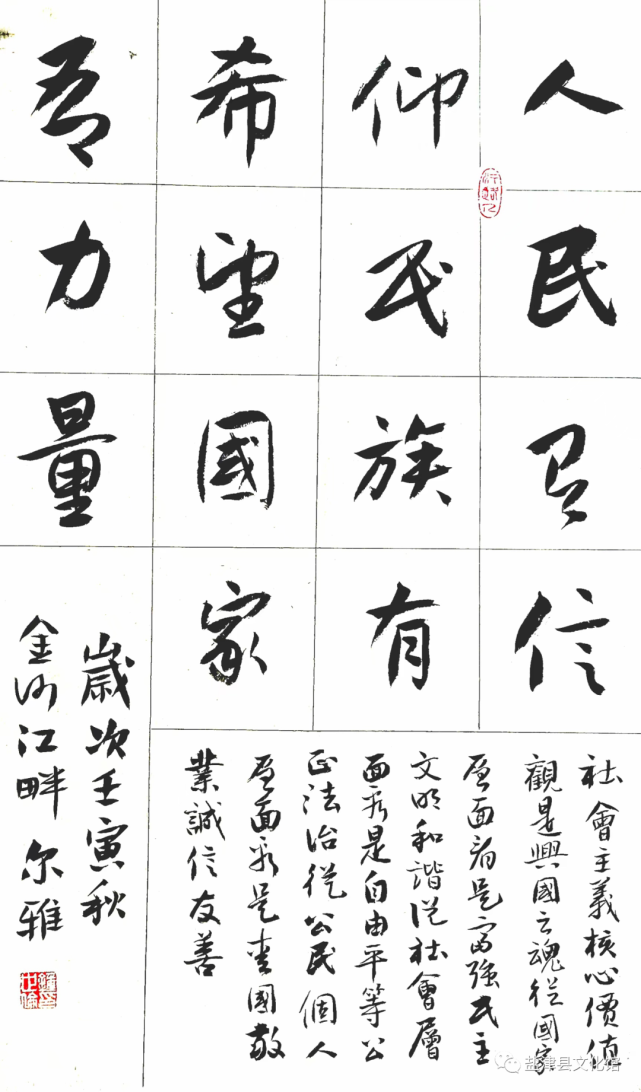 人民有信
仰民族有
希望國家
有力量
社會主義核心價值
觀是興國之魂從國家
層面看是富強民主
文明和諧從社會層
面看是自由平等公
正法治從公民個人
層面看是愛國敬
業誠信友善
歲次壬寅秋
金沙江畔 尔雅
盐津县文化馆